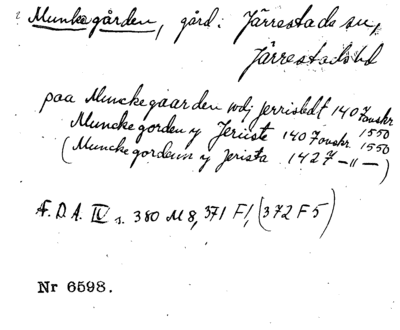 Munkegården, gård i Järrestads sn,
Järrestads hd
paa Munckegaarden wdj Jerristedt 1407 avskr. 1550
Munckegorden y Jeriste 1407 avskr. 1550
(Munckegordenn y Jerista 1427 –"–)
Æ.D.A. IV s. 380 M8, 371 F1, (372 F5)
Nr 6598.